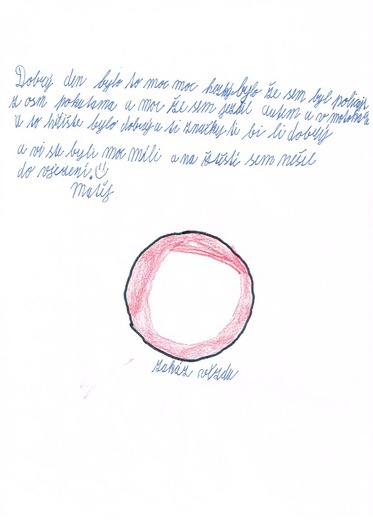 Dobrý den bylo to moc moc hezký bylo že sem byl policajt
z osm pokutama a moc že sem jezdil autem a v
a to hřiště bylo dobrý a ti značky ti bi li dobrý
a vi ste byli moc míli a na štěstí sem nešel
do vjezení.
Matěj
zakáz vězdu